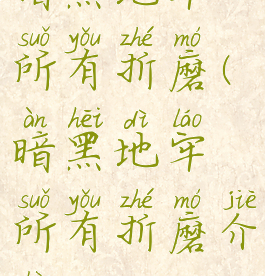 暗黑地牢
suǒ yǒu zhé mó
所有折磨(
àn hēi dì láo
暗黑地牢
suǒ yǒu zhé mó jiè
所有折磨介